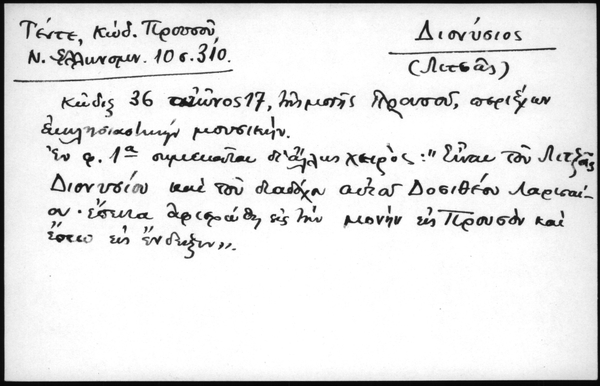 Τέντε, Κώδ. Προυσοῦ
Ν. Ἑλληνομν. 10 σ. 310.
Διονύσιος
(Λιτζᾶς)
Κῶδιξ 36 αἰῶνος 17, τῆς μονῆς Προυσοῦ, περιέχων
ἐκκλησιαστικὴν μουσικήν.
Ἐν φ. 1α σημειοῦται δι' ἄλλης χειρός: "Εἶναι τοῦ Λιτζᾶς
Διονυσίου καὶ τοῦ διαδόχου αὐτοῦ Δοσιθέου Λαρισαί-
ου· ἔπειτα ἀφιερώθη εἰς τὴν μονὴν εἰς Προυσὸν καὶ
ἔστω εἰς ἔνδειξιν".